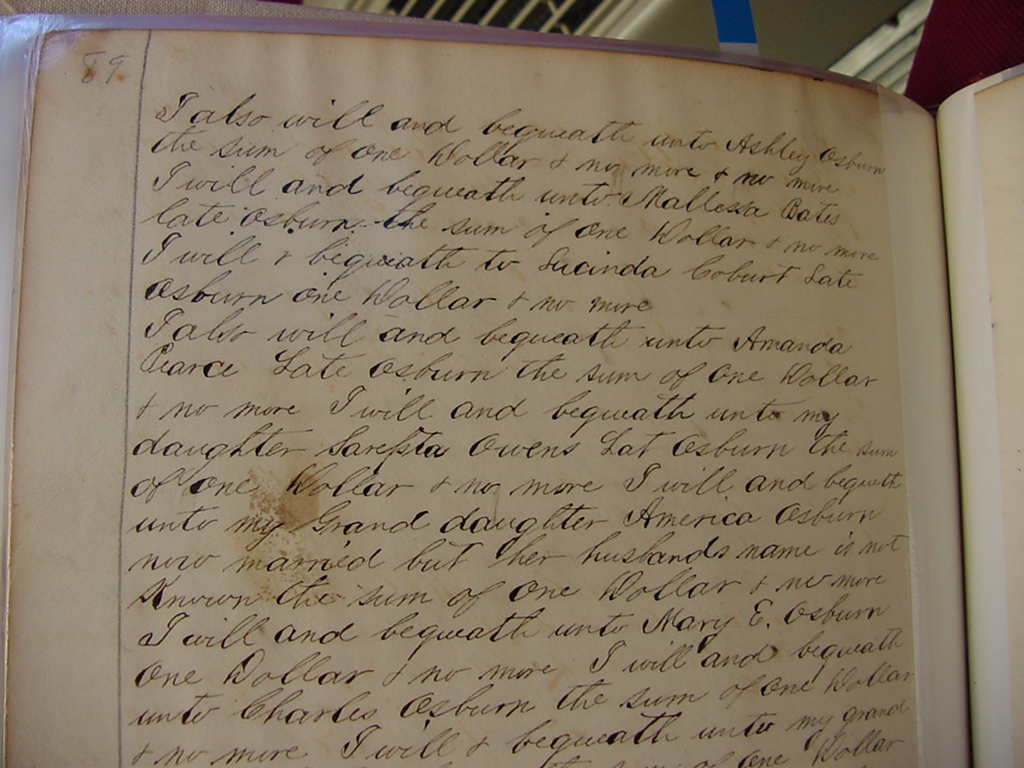 89
I also will and bequeath unto Ashley Osburn
the sum of one Dollar & no more & no more
I will and bequeath unto Mallessa Bates
late Osburn the sum of one Dollar & no more
I will & bequeath to Lucinda Coburt Late
Osburn one Dollar & no more
I also will and bequeath unto Amanda
Pearce Late Osburn the sum of one Dollar
& no more I will and bequeath unto my
daughter Sarepta Owens Lat Osburn the sum
of one Dollar & no more I will and bequeth
unto my Grand daughter America Osburn
now married but her husbands name is not
Known the sum of one Dollar & no more
I will and bequeath unto Mary E. Osburn
One Dollar & no more I will and bequeath
unto Charles Osburn the sum of one Dollar
& no more I will & bequeath unto my grand
the sum of one Dollar